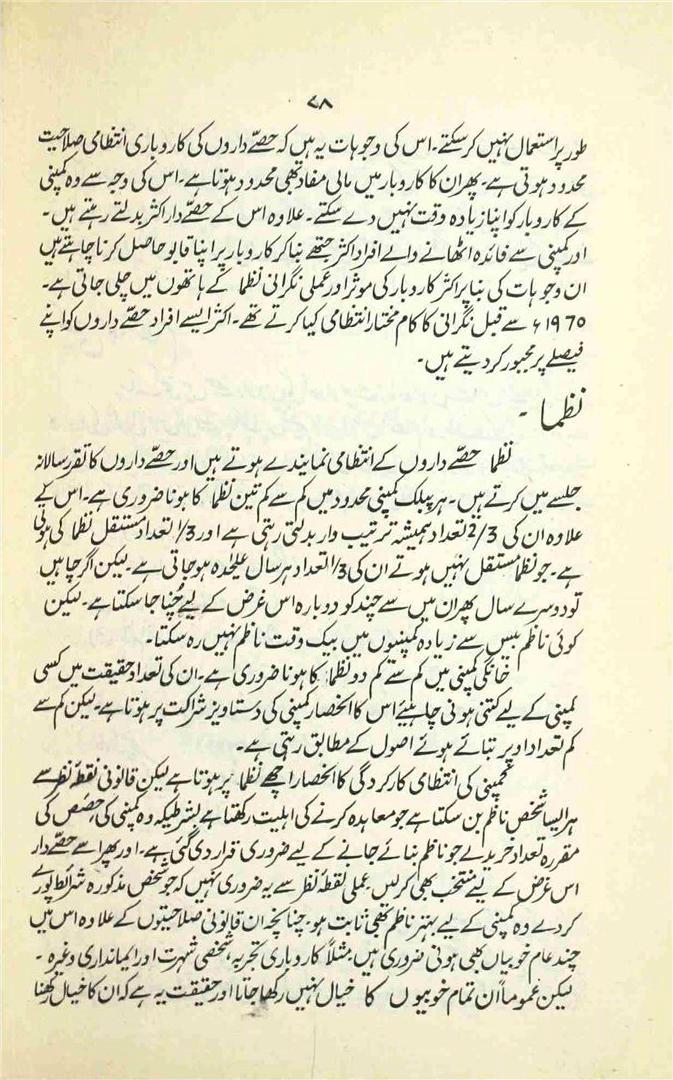 ۷۸
طور پر استعمال نہیں کرسکتے۔ اس کی وجوہات یہ ہیں کہ حصّے داروں کی کاروباری انتظامی صلاحیت
محدود ہوتی ہے۔ پھر ان کا کاروبار میں مالی مفاد بھی محدود ہوتا ہے۔ اس کی وجہ سے وہ کمپنی
کے کاروبار کو اپنا زیادہ وقت نہیں دے سکتے۔ علاوہ اس کے حصّے دار اکثر بدلتے رہتے ہیں۔
اور کمپنی سے فائدہ اٹھانے والے افراد اکثر جتھے بنا کر کاروبار پر اپنا قابو حاصل کرنا چاہتے ہیں
ان وجوہات کی بنا پر اکثر کاروبار کی موثر اور عملی نگرانی نظما کے ہاتھوں میں چلی جاتی ہے۔
۱۹۶۵ء سے قبل نگرانی کا کام مختار انتظامی کیا کرتے تھے۔ اکثر ایسے افراد حصّے داروں کو اپنے
فیصلے پر مجبور کر دیتے ہیں۔
نظما ۔
نظما حصّے داروں کے انتظامی نمایندے ہوتے ہیں اور حصّے داروں کا تقرر سالانہ
جلسے میں کرتے ہیں۔ ہر پبلک کمپنی محدود میں کم سے کم تین نظما کا ہونا ضروری ہے۔ اس کے
علاوہ ان کی 2/3 تعداد ہمیشہ ترتیب وار بدلتی رہتی ہے اور 1/3 تعداد مستقل نظما کی ہوتی
ہے۔ جو نظما مستقل نہیں ہوتے ان کی 1/3 تعداد ہر سال علیٰحدہ ہو جاتی ہے۔ لیکن اگر چاہیں
تو دوسرے سال پھر ان میں سے چند کو دوبارہ اس غرض کے لیے چُنا جا سکتا ہے۔ لیکن
کوئی ناظم بیس سے زیادہ کمپنیوں میں بیک وقت ناظم نہیں رہ سکتا۔
خانگی کمپنی میں کم سے کم دو نظما کا ہونا ضروری ہے۔ ان کی تعداد حقیقت میں کسی
کمپنی کے لیے کتنی ہونی چاہیئے اس کا انحصار کمپنی کی دستاویز شراکت پر ہوتا ہے۔ لیکن کم سے
کم تعداد اوپر بتائے ہوئے اصول کے مطابق رہتی ہے۔
کمپنی کی انتظامی کارکردگی کا انحصار اچھے نظما پر ہوتا ہے لیکن قانونی نقطۂ نظر سے
ہر ایسا شخص ناظم بن سکتا ہے جو معاہدہ کرنے کی اہلیت رکھتا ہے بشرطیکہ وہ کمپنی کی حصص کی
مقررہ تعداد خرید لے جو ناظم بنائے جانے کے لیے ضروری قرار دی گئی ہے۔ اور پھر اسے حصّے دار
اس غرض کے لیے منتخب بھی کرلیں۔ عملی نقطۂ نظر سے یہ ضروری نہیں کہ جو شخص مذکورہ شرائط پورے
کردے وہ کمپنی کے لیے بہتر ناظم بھی ثابت ہو۔ چنانچہ ان قانونی صلاحیتوں کے علاوہ اس میں
چند عام خوبیاں بھی ہونی ضروری ہیں مثلاً کاروباری تجربہ، شخصی شہرت اور ایمانداری وغیرہ۔
لیکن عموماً ان تمام خوبیوں کا خیال نہیں رکھا جاتا اور حقیقت یہ ہے کہ ان کا خیال رکھنا